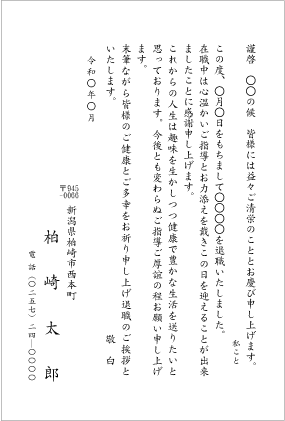 謹啓　〇〇の候　皆様には益々ご清栄のこととお慶び申し上げます。
私こと
この度、〇月〇日をもちまして〇〇〇〇を退職いたしました。
在職中は心温かいご指導とお力添えを戴きこの日を迎えることが出来
ましたことに感謝申し上げます。
これからの人生は趣味を生かしつつ健康で豊かな生活を送りたいと
思っております。今後とも変わらぬご指導ご厚誼の程お願い申し上げ
ます。
末筆ながら皆様のご健康とご多幸をお祈り申し上げ退職のご挨拶と
いたします。
敬　白
令和〇年〇月
〒945-0066
新潟県柏崎市西本町
柏崎太郎
電話（〇二五七）二四―〇〇〇〇